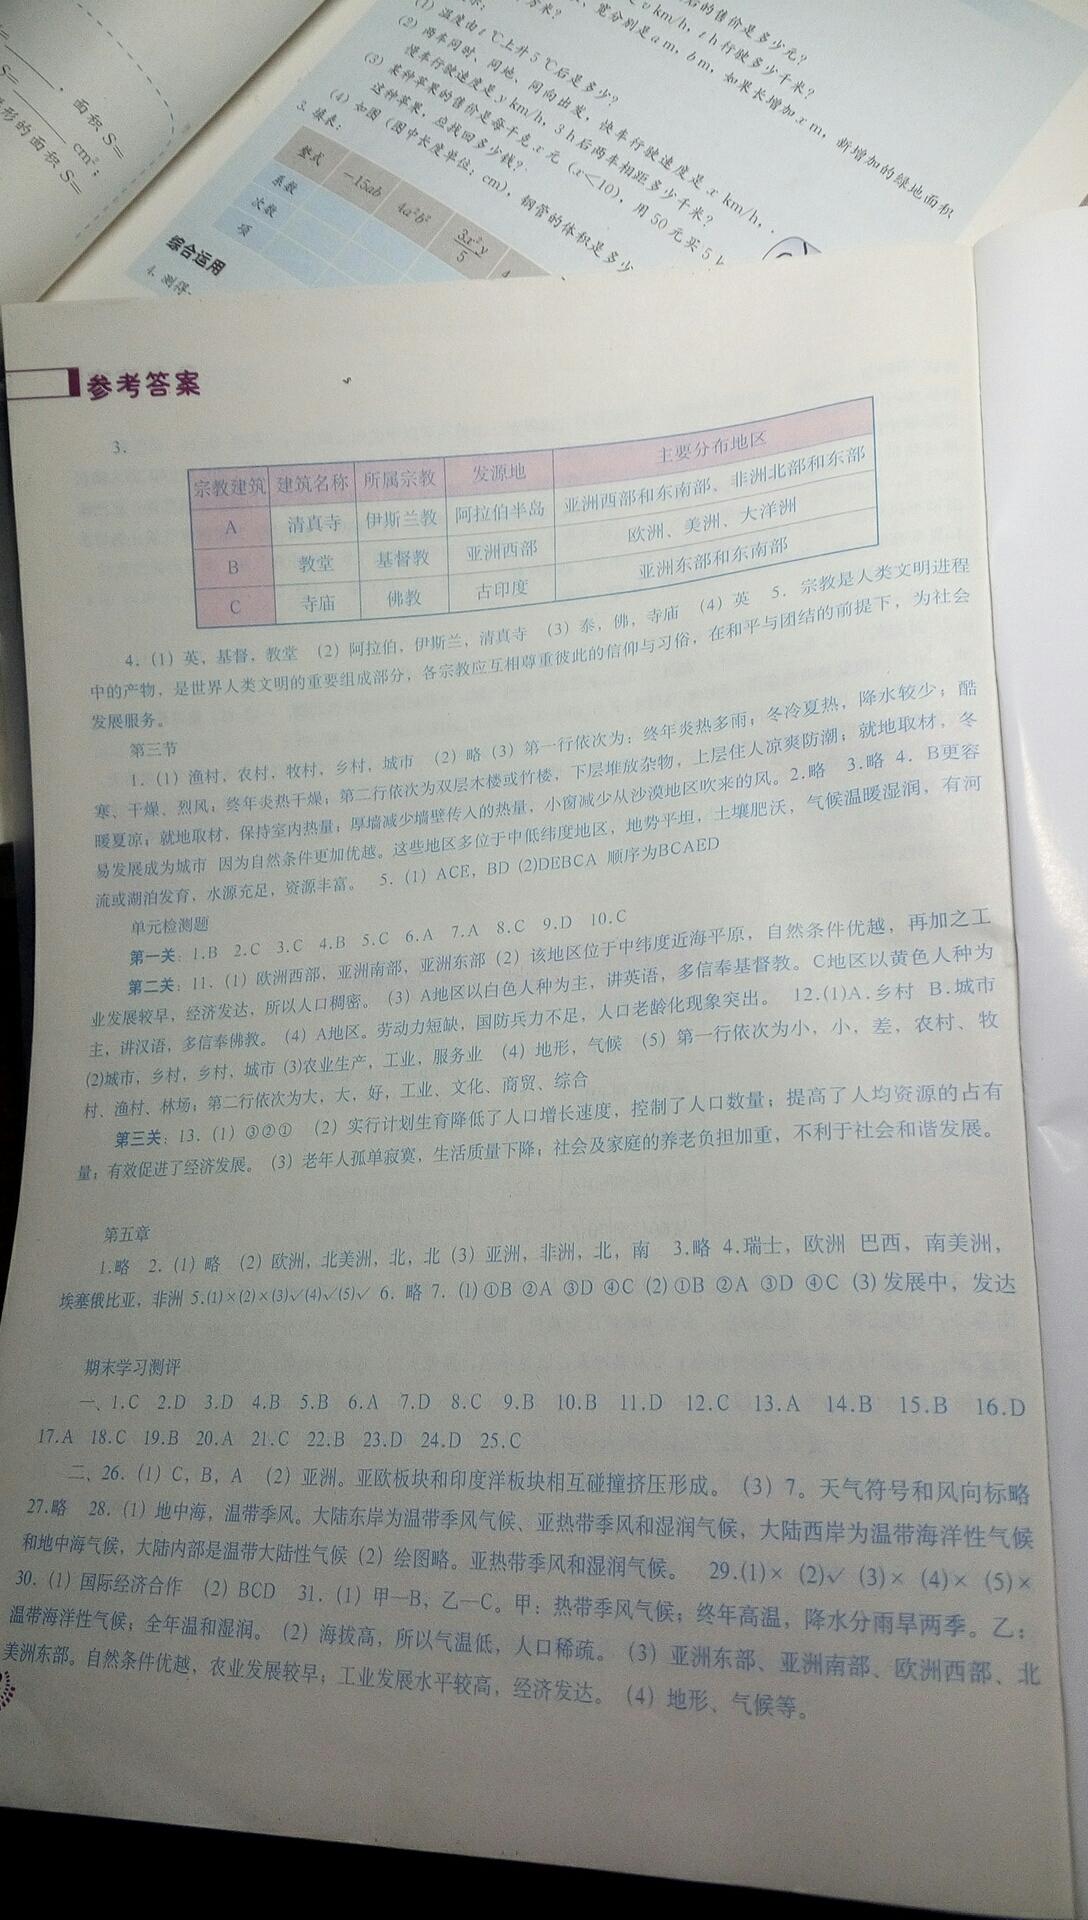 面积S=
S=
cm²；
形的面积S=
后的售价是多少元？
v km/h，t h行驶多少千米？
宽分别是a m，b m，如果长增加x m，新增加的绿地面积
方米？
(1) 温度由t ℃上升5 ℃后是多少？
(2) 两车同时、同地、同向出发，快车行驶速度是x km/h，
慢车行驶速度是y km/h，3 h后两车相距多少千米？
(3) 某种苹果的售价是每千克x元（x<10），用50元买5
这种苹果，应找回多少钱？
(4) 如图（图中长度单位：cm），钢管的体积是多少
3. 填表：
整式 -15ab 4a²b² 3x²y/5
系数
次数
项
综合运用
4. 测得
参考答案
3.
宗教建筑 建筑名称 所属宗教 发源地 主要分布地区
A 清真寺 伊斯兰教 阿拉伯半岛 亚洲西部和东南部、非洲北部和东部
B 教堂 基督教 亚洲西部 欧洲、美洲、大洋洲
C 寺庙 佛教 古印度 亚洲东部和东南部
4.（1）英，基督，教堂 （2）阿拉伯，伊斯兰，清真寺 （3）泰，佛，寺庙 （4）英 5. 宗教是人类文明进程
中的产物，是世界人类文明的重要组成部分，各宗教应互相尊重彼此的信仰与习俗，在和平与团结的前提下，为社会
发展服务。
第三节
1.（1）渔村，农村，牧村，乡村，城市 （2）略（3）第一行依次为：终年炎热多雨；冬冷夏热，降水较少；酷
寒、干燥、烈风；终年炎热干燥；第二行依次为双层木楼或竹楼，下层堆放杂物，上层住人凉爽防潮；就地取材，冬
暖夏凉；就地取材，保持室内热量；厚墙减少墙壁传入的热量，小窗减少从沙漠地区吹来的风。2.略 3.略 4. B更容
易发展成为城市 因为自然条件更加优越。这些地区多位于中低纬度地区，地势平坦，土壤肥沃，气候温暖湿润，有河
流或湖泊发育，水源充足，资源丰富。 5.（1）ACE，BD (2)DEBCA 顺序为BCAED
单元检测题
第一关：1.B 2.C 3.C 4.B 5.C 6.A 7.A 8.C 9.D 10.C
第二关：11.（1）欧洲西部，亚洲南部，亚洲东部（2）该地区位于中纬度近海平原，自然条件优越，再加之工
业发展较早，经济发达，所以人口稠密。（3）A地区以白色人种为主，讲英语，多信奉基督教。C地区以黄色人种为
主，讲汉语，多信奉佛教。（4）A地区。劳动力短缺，国防兵力不足，人口老龄化现象突出。 12.(1)A.乡村 B.城市
(2)城市，乡村，乡村，城市 (3)农业生产，工业，服务业 （4）地形，气候 （5）第一行依次为小，小，差，农村、牧
村、渔村、林场；第二行依次为大，大，好，工业、文化、商贸、综合
第三关：13.（1）③②① （2）实行计划生育降低了人口增长速度，控制了人口数量；提高了人均资源的占有
量；有效促进了经济发展。（3）老年人孤单寂寞，生活质量下降；社会及家庭的养老负担加重，不利于社会和谐发展。
第五章
1.略 2.（1）略 （2）欧洲，北美洲，北，北（3）亚洲，非洲，北，南 3.略 4.瑞士，欧洲 巴西，南美洲，
埃塞俄比亚，非洲 5.(1)×(2)×(3)√(4)√(5)√ 6. 略 7. (1) ①B ②A ③D ④C (2) ①B ②A ③D ④C (3) 发展中，发达
期末学习测评
一、1.C 2.D 3.D 4.B 5.B 6.A 7.D 8.C 9.B 10.B 11.D 12.C 13.A 14.B 15.B 16.D
17.A 18.C 19.B 20.A 21.C 22.B 23.D 24.D 25.C
二、26.（1）C，B，A （2）亚洲。亚欧板块和印度洋板块相互碰撞挤压形成。（3）7。天气符号和风向标略
27.略 28.（1）地中海，温带季风。大陆东岸为温带季风气候、亚热带季风和湿润气候，大陆西岸为温带海洋性气候
和地中海气候，大陆内部是温带大陆性气候（2）绘图略。亚热带季风和湿润气候。 29.(1)× (2)√ (3)× (4)× (5)×
30.（1）国际经济合作 （2）BCD 31.（1）甲—B，乙—C。甲：热带季风气候；终年高温，降水分雨旱两季。乙：
温带海洋性气候；全年温和湿润。（2）海拔高，所以气温低，人口稀疏。（3）亚洲东部、亚洲南部、欧洲西部、北
美洲东部。自然条件优越，农业发展较早；工业发展水平较高，经济发达。（4）地形、气候等。